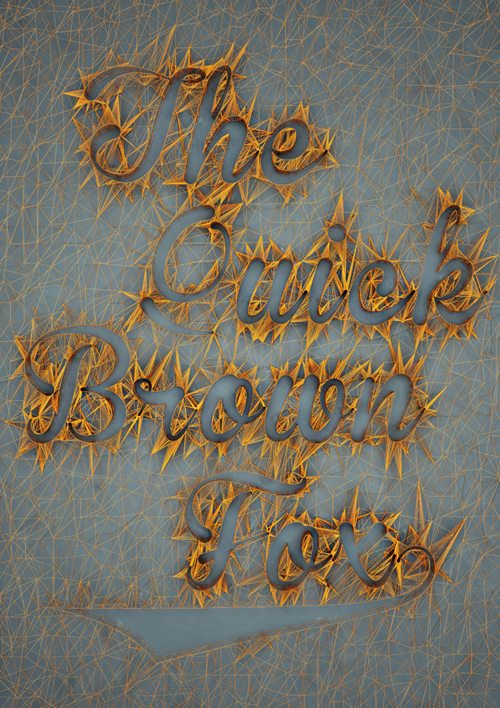 The
Quick
Brown
Fox